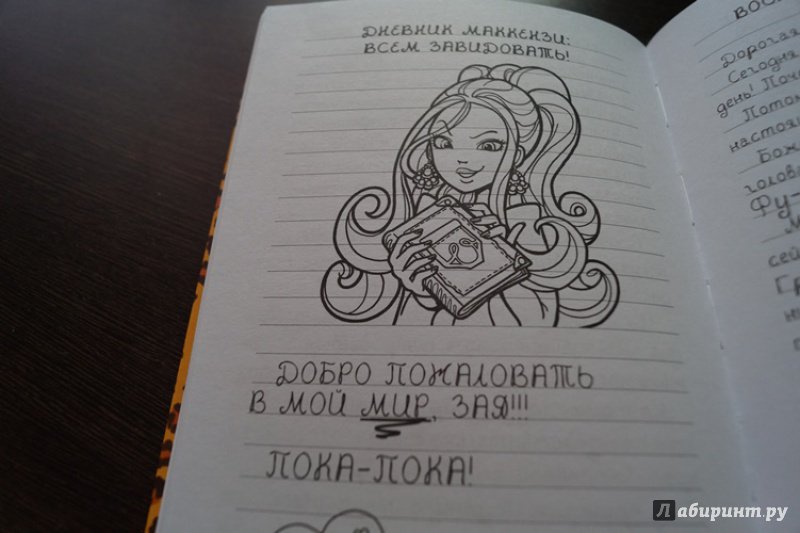 ДНЕВНИК МАККЕНЗИ:
ВСЕМ ЗАВИДОВАТЬ!
ДОБРО ПОЖАЛОВАТЬ
В МОЙ МИР, ЗАЯ!!!
ПОКА-ПОКА!
Дорогая
Сегодня
день!
Пото
Бож
Фу-
Лабиринт.ру